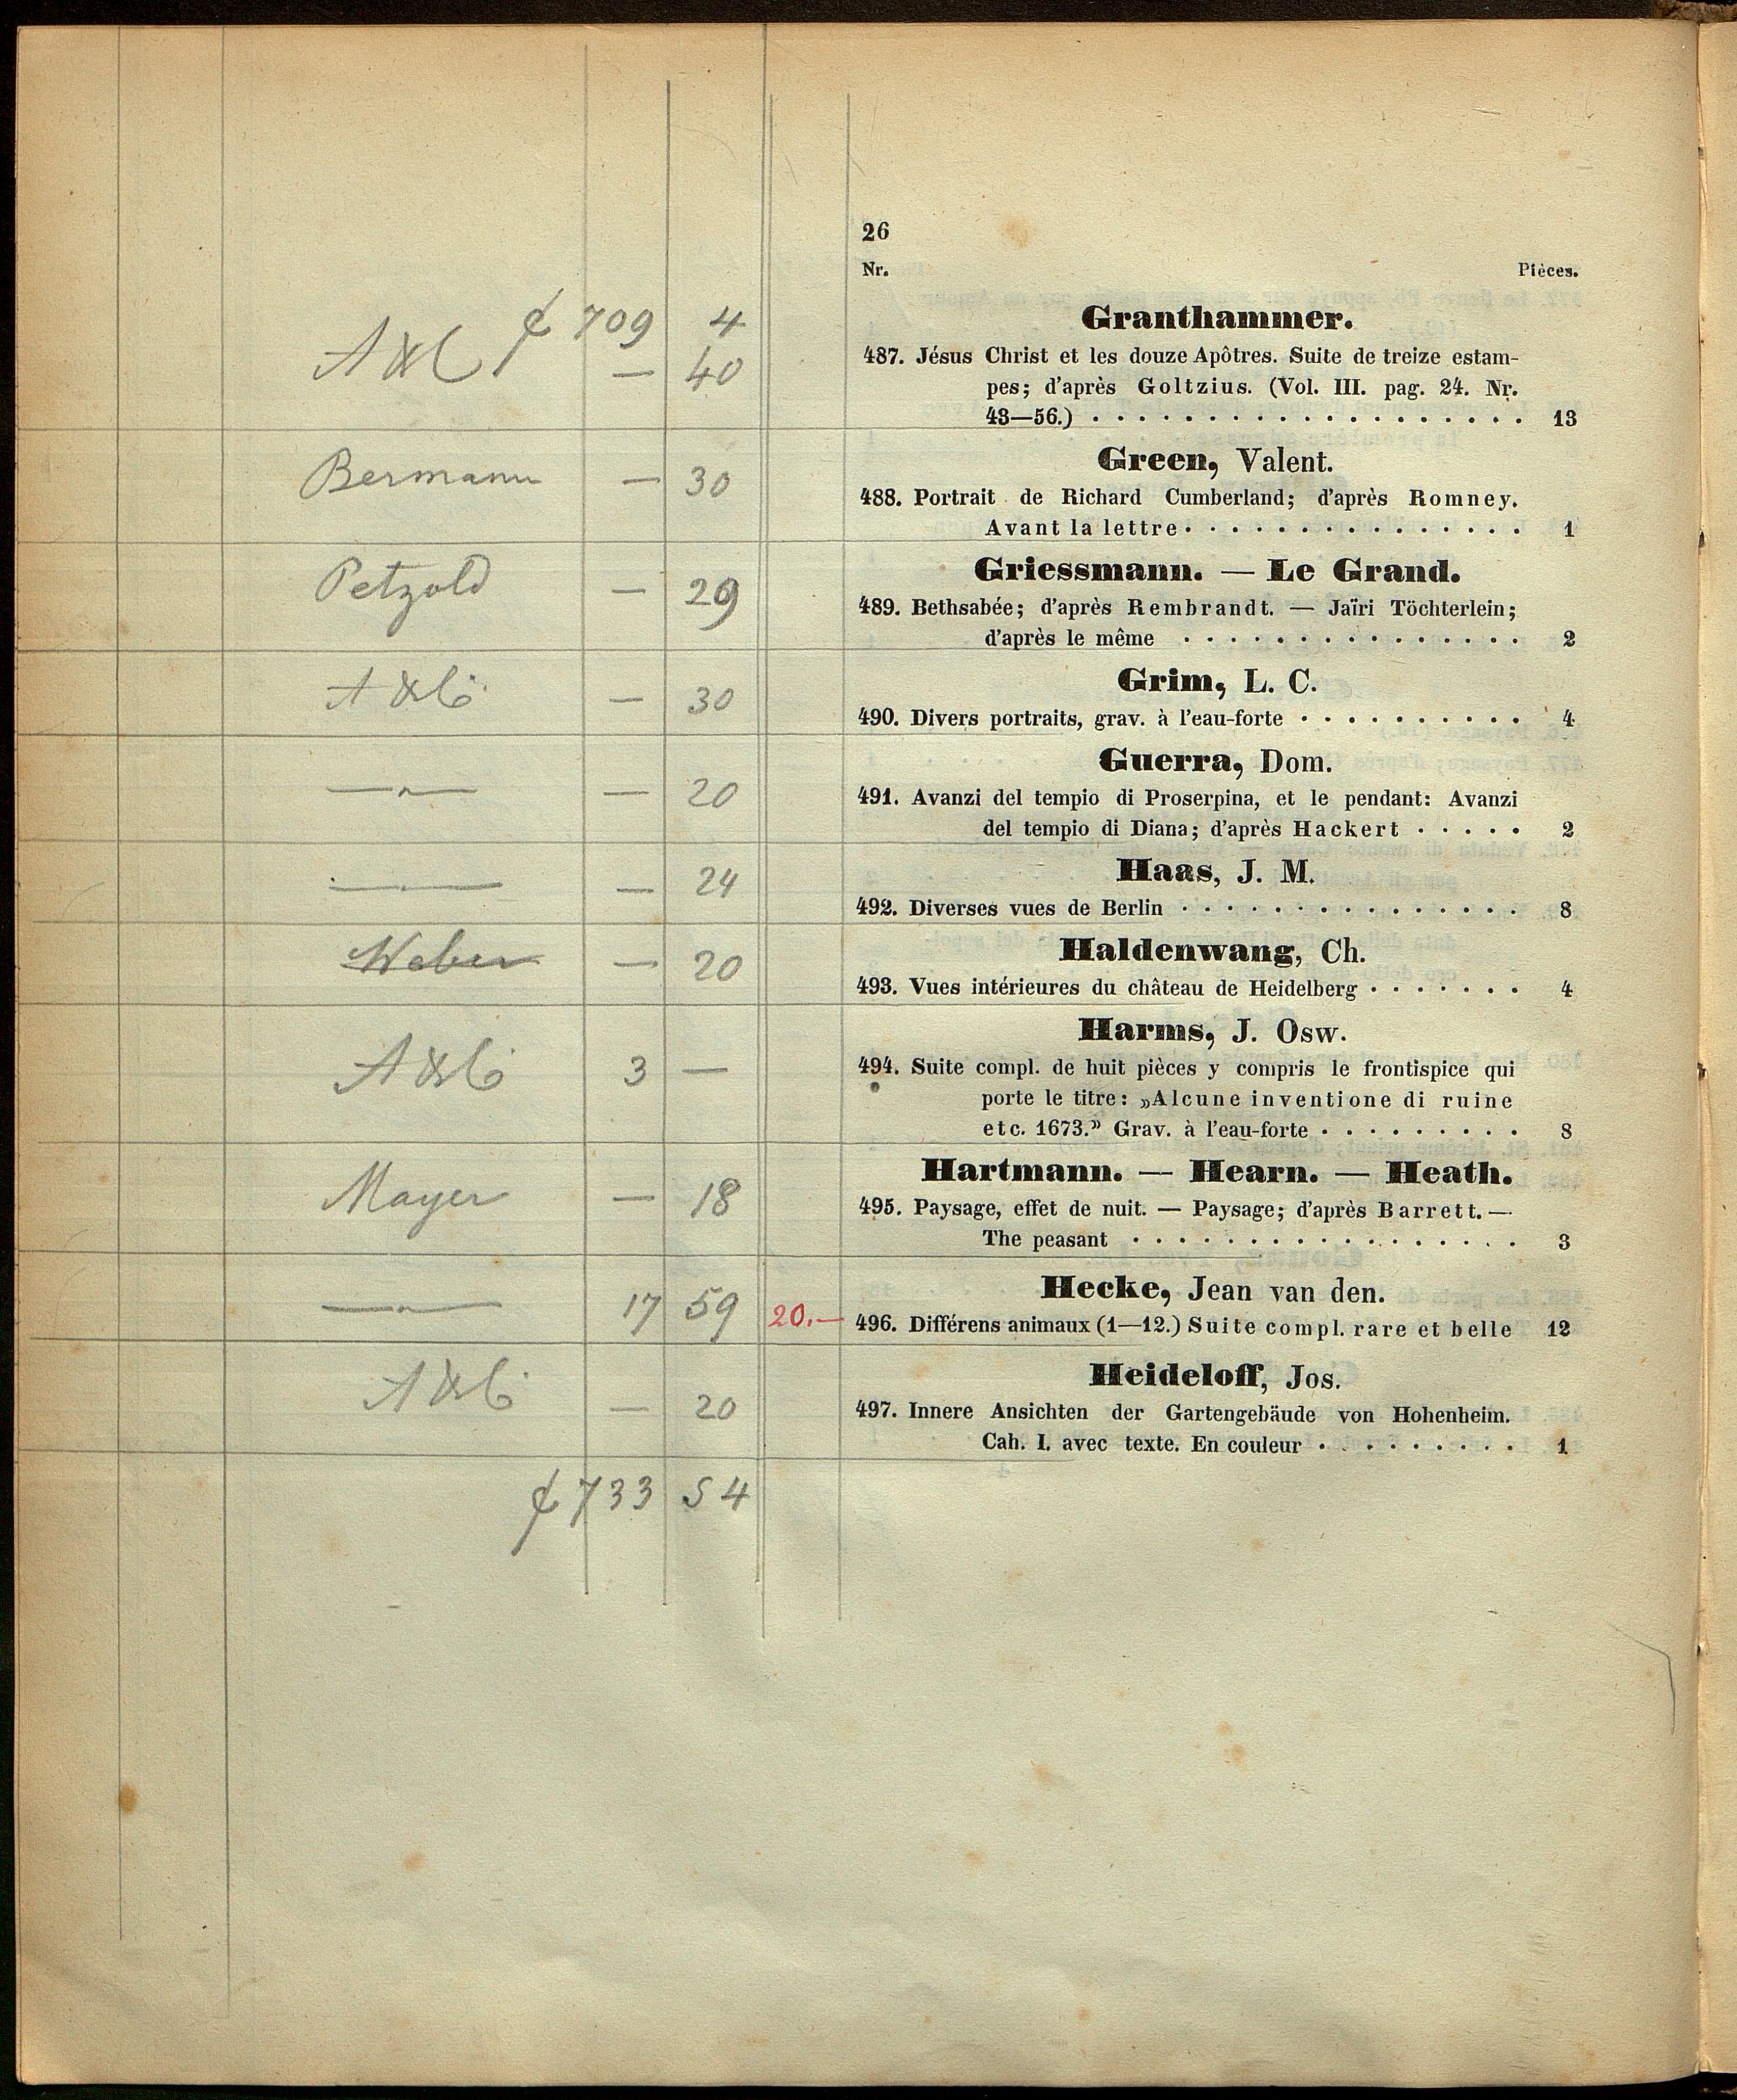 26
Nr. Pièces.
₰ 709 4
Granthammer.
A&C — 40
487. Jésus Christ et les douze Apôtres. Suite de treize estam-
pes; d'après Goltzius. (Vol. III. pag. 24. Nr.
43—56.) . . . . . . . . . . . . . . . . . . . 13
Green, Valent.
Bermann — 30
488. Portrait de Richard Cumberland; d'après Romney.
Avant la lettre . . . . . . . . . . . . . . . 1
Griessmann. — Le Grand.
Petzold — 29
489. Bethsabée; d'après Rembrandt. — Jaïri Töchterlein;
d'après le même . . . . . . . . . . . . . . . 2
Grim, L. C.
A&Co — 30
490. Divers portraits, grav. à l'eau-forte . . . . . . . . . . 4
Guerra, Dom.
—„— — 20
491. Avanzi del tempio di Proserpina, et le pendant: Avanzi
del tempio di Diana; d'après Hackert . . . . . 2
Haas, J. M.
—„— — 24
492. Diverses vues de Berlin . . . . . . . . . . . . . . . 8
Haldenwang, Ch.
Weber — 20
493. Vues intérieures du château de Heidelberg . . . . . . . 4
Harms, J. Osw.
A&Co 3 —
494. Suite compl. de huit pièces y compris le frontispice qui
porte le titre: „Alcune inventione di ruine
etc. 1673.” Grav. à l'eau-forte . . . . . . . . . 8
Hartmann. — Hearn. — Heath.
Mayer — 18
495. Paysage, effet de nuit. — Paysage; d'après Barrett. —
The peasant . . . . . . . . . . . . . . . . . 3
Hecke, Jean van den.
—„— 17 59 20.—
496. Différens animaux (1—12.) Suite compl. rare et belle 12
Heideloff, Jos.
A&Co — 20
497. Innere Ansichten der Gartengebäude von Hohenheim.
Cah. I. avec texte. En couleur . . . . . . . . . 1
₰ 733 54